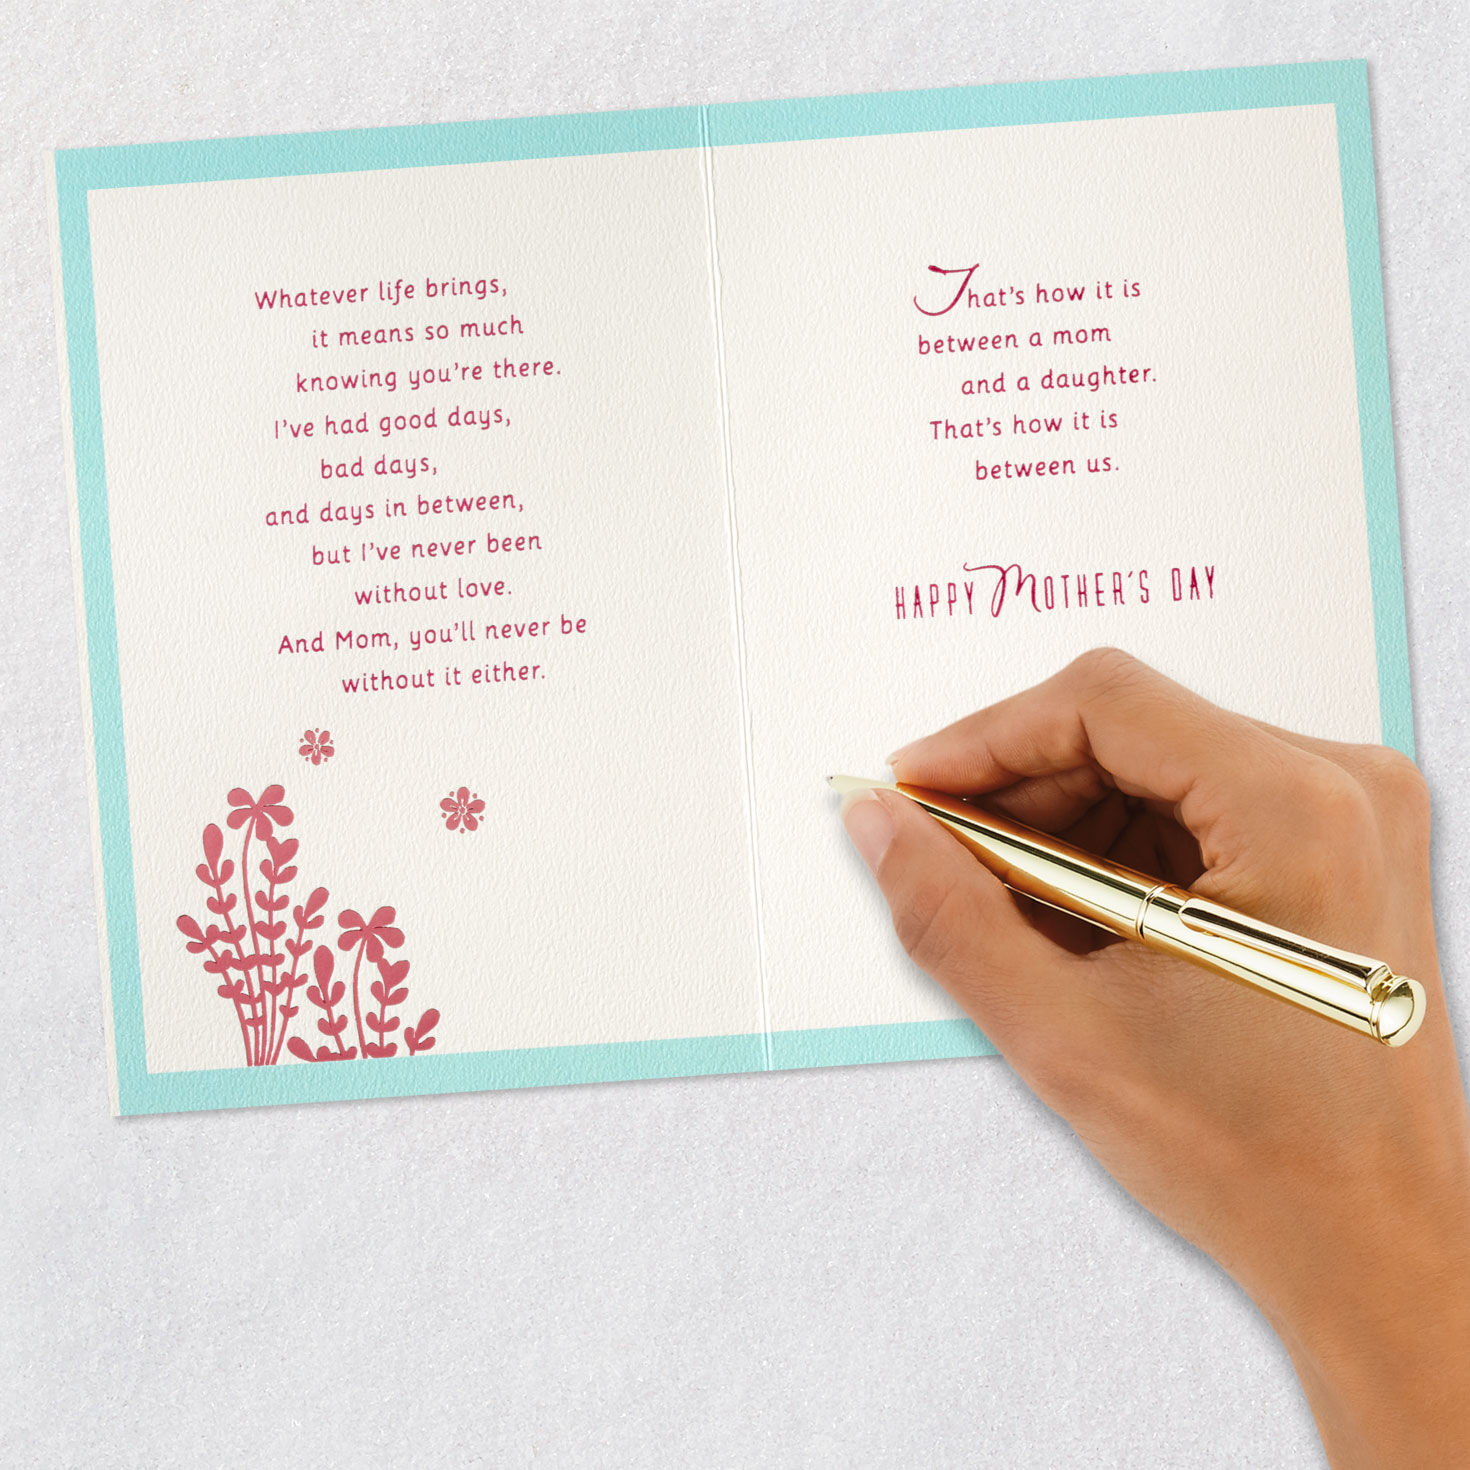 Whatever life brings,
it means so much
knowing you're there.
I've had good days,
bad days,
and days in between,
but I've never been
without love.
And Mom, you'll never be
without it either.
That's how it is
between a mom
and a daughter.
That's how it is
between us.
HAPPY MOTHER'S DAY